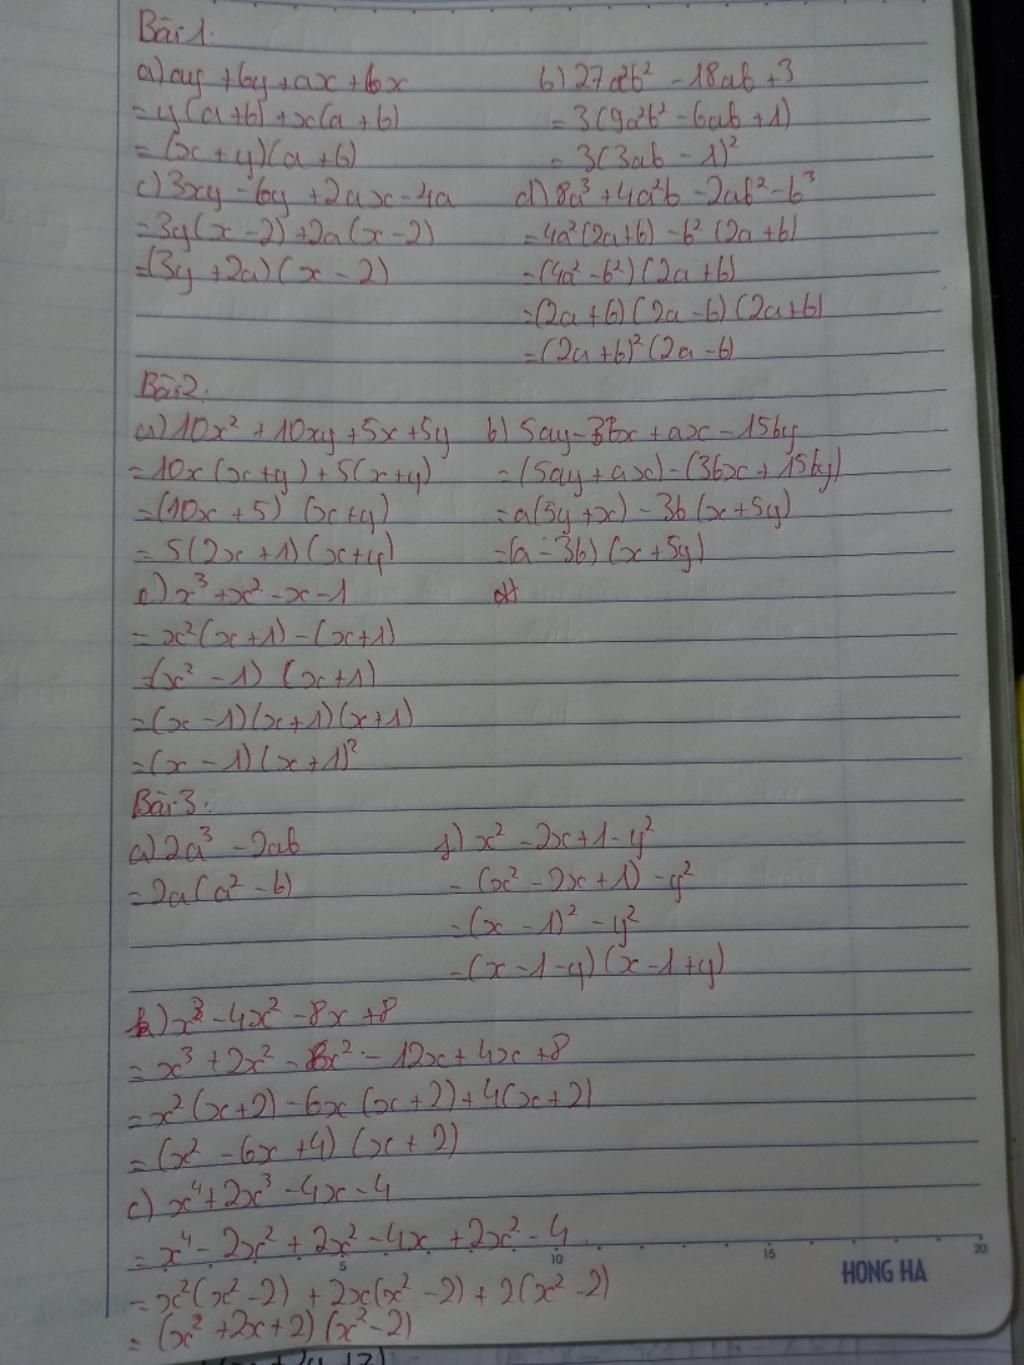 Bài 1:
a) ay + by + ax + bx
= y(a+b) + x(a+b)
= (x+y)(a+b)
b) 27a²b² - 18ab + 3
= 3(9a²b² - 6ab + 1)
= 3(3ab - 1)²
c) 3xy - 6y + 2ax - 4a
= 3y(x-2) + 2a(x-2)
= (3y + 2a)(x-2)
d) 8a³ + 4a²b - 2ab² - b³
= 4a²(2a+b) - b²(2a+b)
= (4a² - b²)(2a+b)
= (2a+b)(2a-b)(2a+b)
= (2a+b)²(2a-b)
Bài 2:
a) 10x² + 10xy + 5x + 5y
= 10x(x+y) + 5(x+y)
= (10x + 5)(x+y)
= 5(2x+1)(x+y)
b) 5ay - 3bx + ax - 15by
= (5ay + ax) - (3bx + 15by)
= a(5y+x) - 3b(x+5y)
= (a-3b)(x+5y)
c) x³ + x² - x - 1
= x²(x+1) - (x+1)
(x² - 1)(x+1)
= (x-1)(x+1)(x+1)
= (x-1)(x+1)²
Bài 3:
a) 2a³ - 2ab
= 2a(a² - b)
f) x² - 2x + 1 - y²
= (x² - 2x + 1) - y²
= (x-1)² - y²
= (x-1-y)(x-1+y)
b) x³ - 4x² - 8x + 8
= x³ + 2x² - 6x² - 12x + 4x + 8
= x²(x+2) - 6x(x+2) + 4(x+2)
= (x² - 6x + 4)(x+2)
c) x⁴ + 2x³ - 4x - 4
= x⁴ - 2x² + 2x² - 4x + 2x² - 4
5 10 15 20
HONG HA
= x²(x² - 2) + 2x(x² - 2) + 2(x² - 2)
= (x² + 2x + 2)(x² - 2)